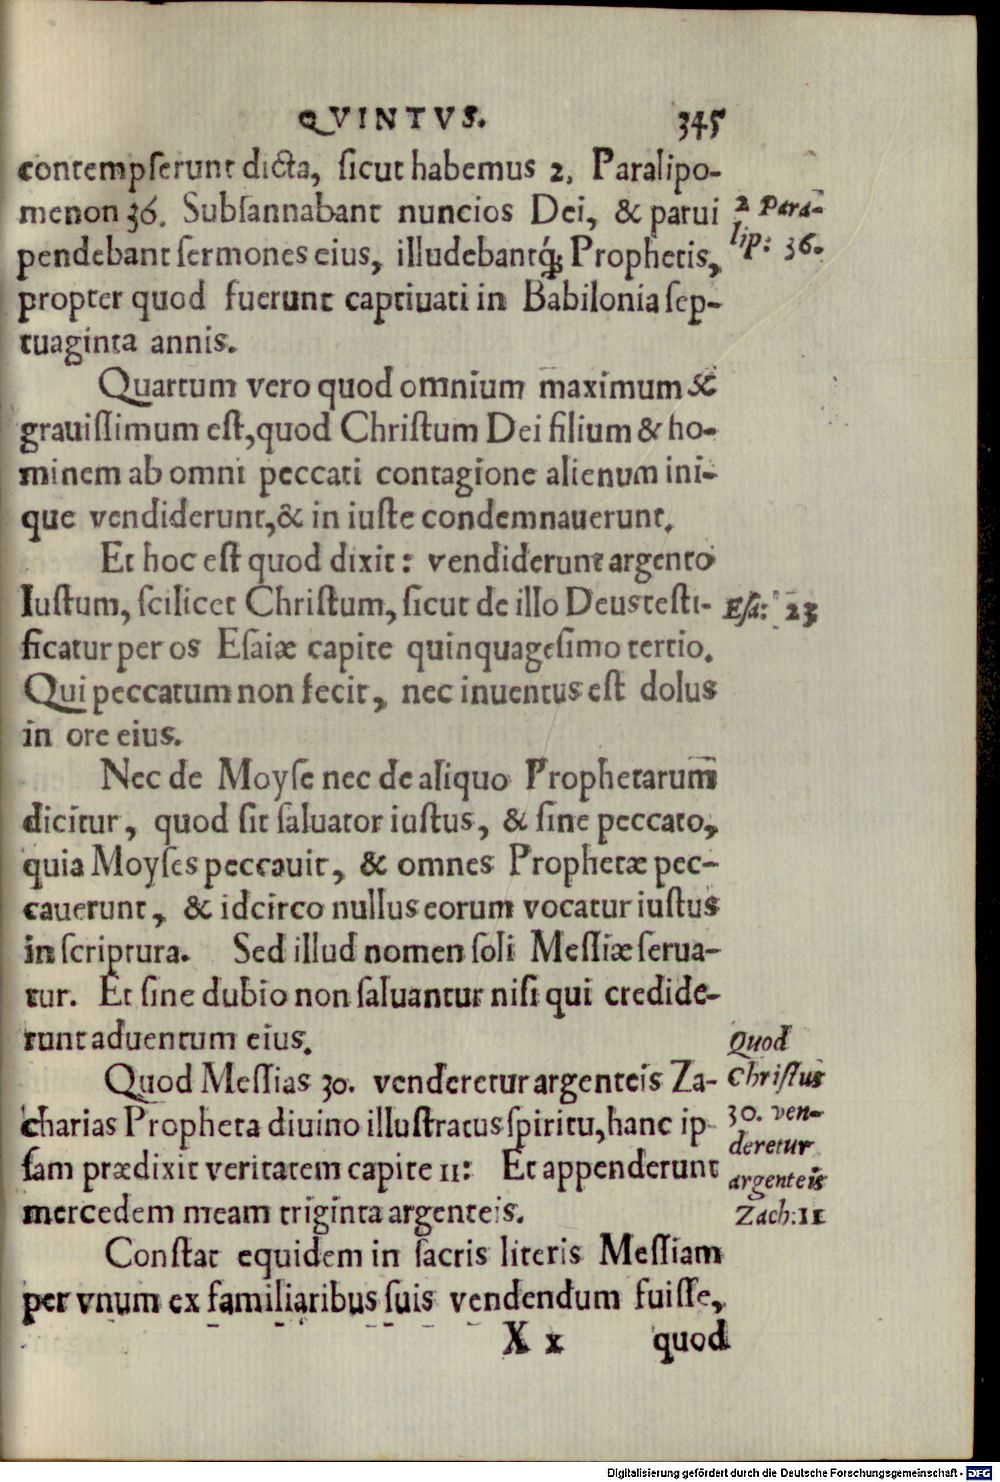 QVINTVS. 345
contempserunt dicta, sicut habemus 2. Paralipo-
menon 36. Subsannabant nuncios Dei, & parui
2 Para-
pendebant sermones eius, illudebantq́; Prophetis,
lip: 36.
propter quod fuerunt captiuati in Babilonia sep-
tuaginta annis.
Quartum vero quod omnium maximum &
grauissimum est, quod Christum Dei filium & ho-
minem ab omni peccati contagione alienum ini-
que vendiderunt, & in iuste condemnauerunt.
Et hoc est quod dixit: vendiderunt argento
Iustum, scilicet Christum, sicut de illo Deus testi-
Esa: 23
ficatur per os Esaiæ capite quinquagesimo tertio.
Qui peccatum non fecit, nec inuentus est dolus
in ore eius.
Nec de Moyse nec de aliquo Prophetarum
dicitur, quod sit saluator iustus, & sine peccato,
quia Moyses peccauit, & omnes Prophetæ pec-
cauerunt, & idcirco nullus eorum vocatur iustus
in scriptura. Sed illud nomen soli Messiæ serua-
tur. Et sine dubio non saluantur nisi qui credide-
runt aduentum eius.
Quod
Christus
30. ven-
deretur
argenteis
Zach: 11
Quod Messias 30. venderetur argenteis Za-
charias Propheta diuino illustratus spiritu, hanc ip
sam prædixit veritatem capite 11: Et appenderunt
mercedem meam triginta argenteis.
Constat equidem in sacris literis Messiam
per vnum ex familiaribus suis vendendum fuisse,
X x quod
Digitalisierung gefördert durch die Deutsche Forschungsgemeinschaft - DFG